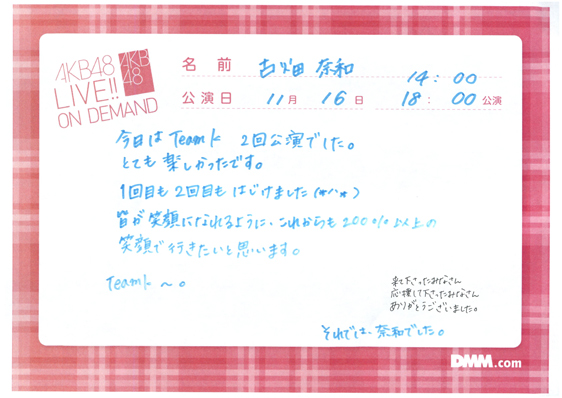 AKB48
LIVE!!
ON DEMAND
AKB
48
名前 古畑 奈和 14:00
公演日 11月 16日 18:00 公演
今日は Teamk 2回公演でした。
とても楽しかったです。
1回目も2回目も はじけました(*^^*)
皆が笑顔になれるように、これからも200%以上の
笑顔で行きたいと思います。
Teamk ～。
来て下さったみなさん
応援して下さったみなさん
ありがとうございました。
それでは、奈和でした。
DMM.com